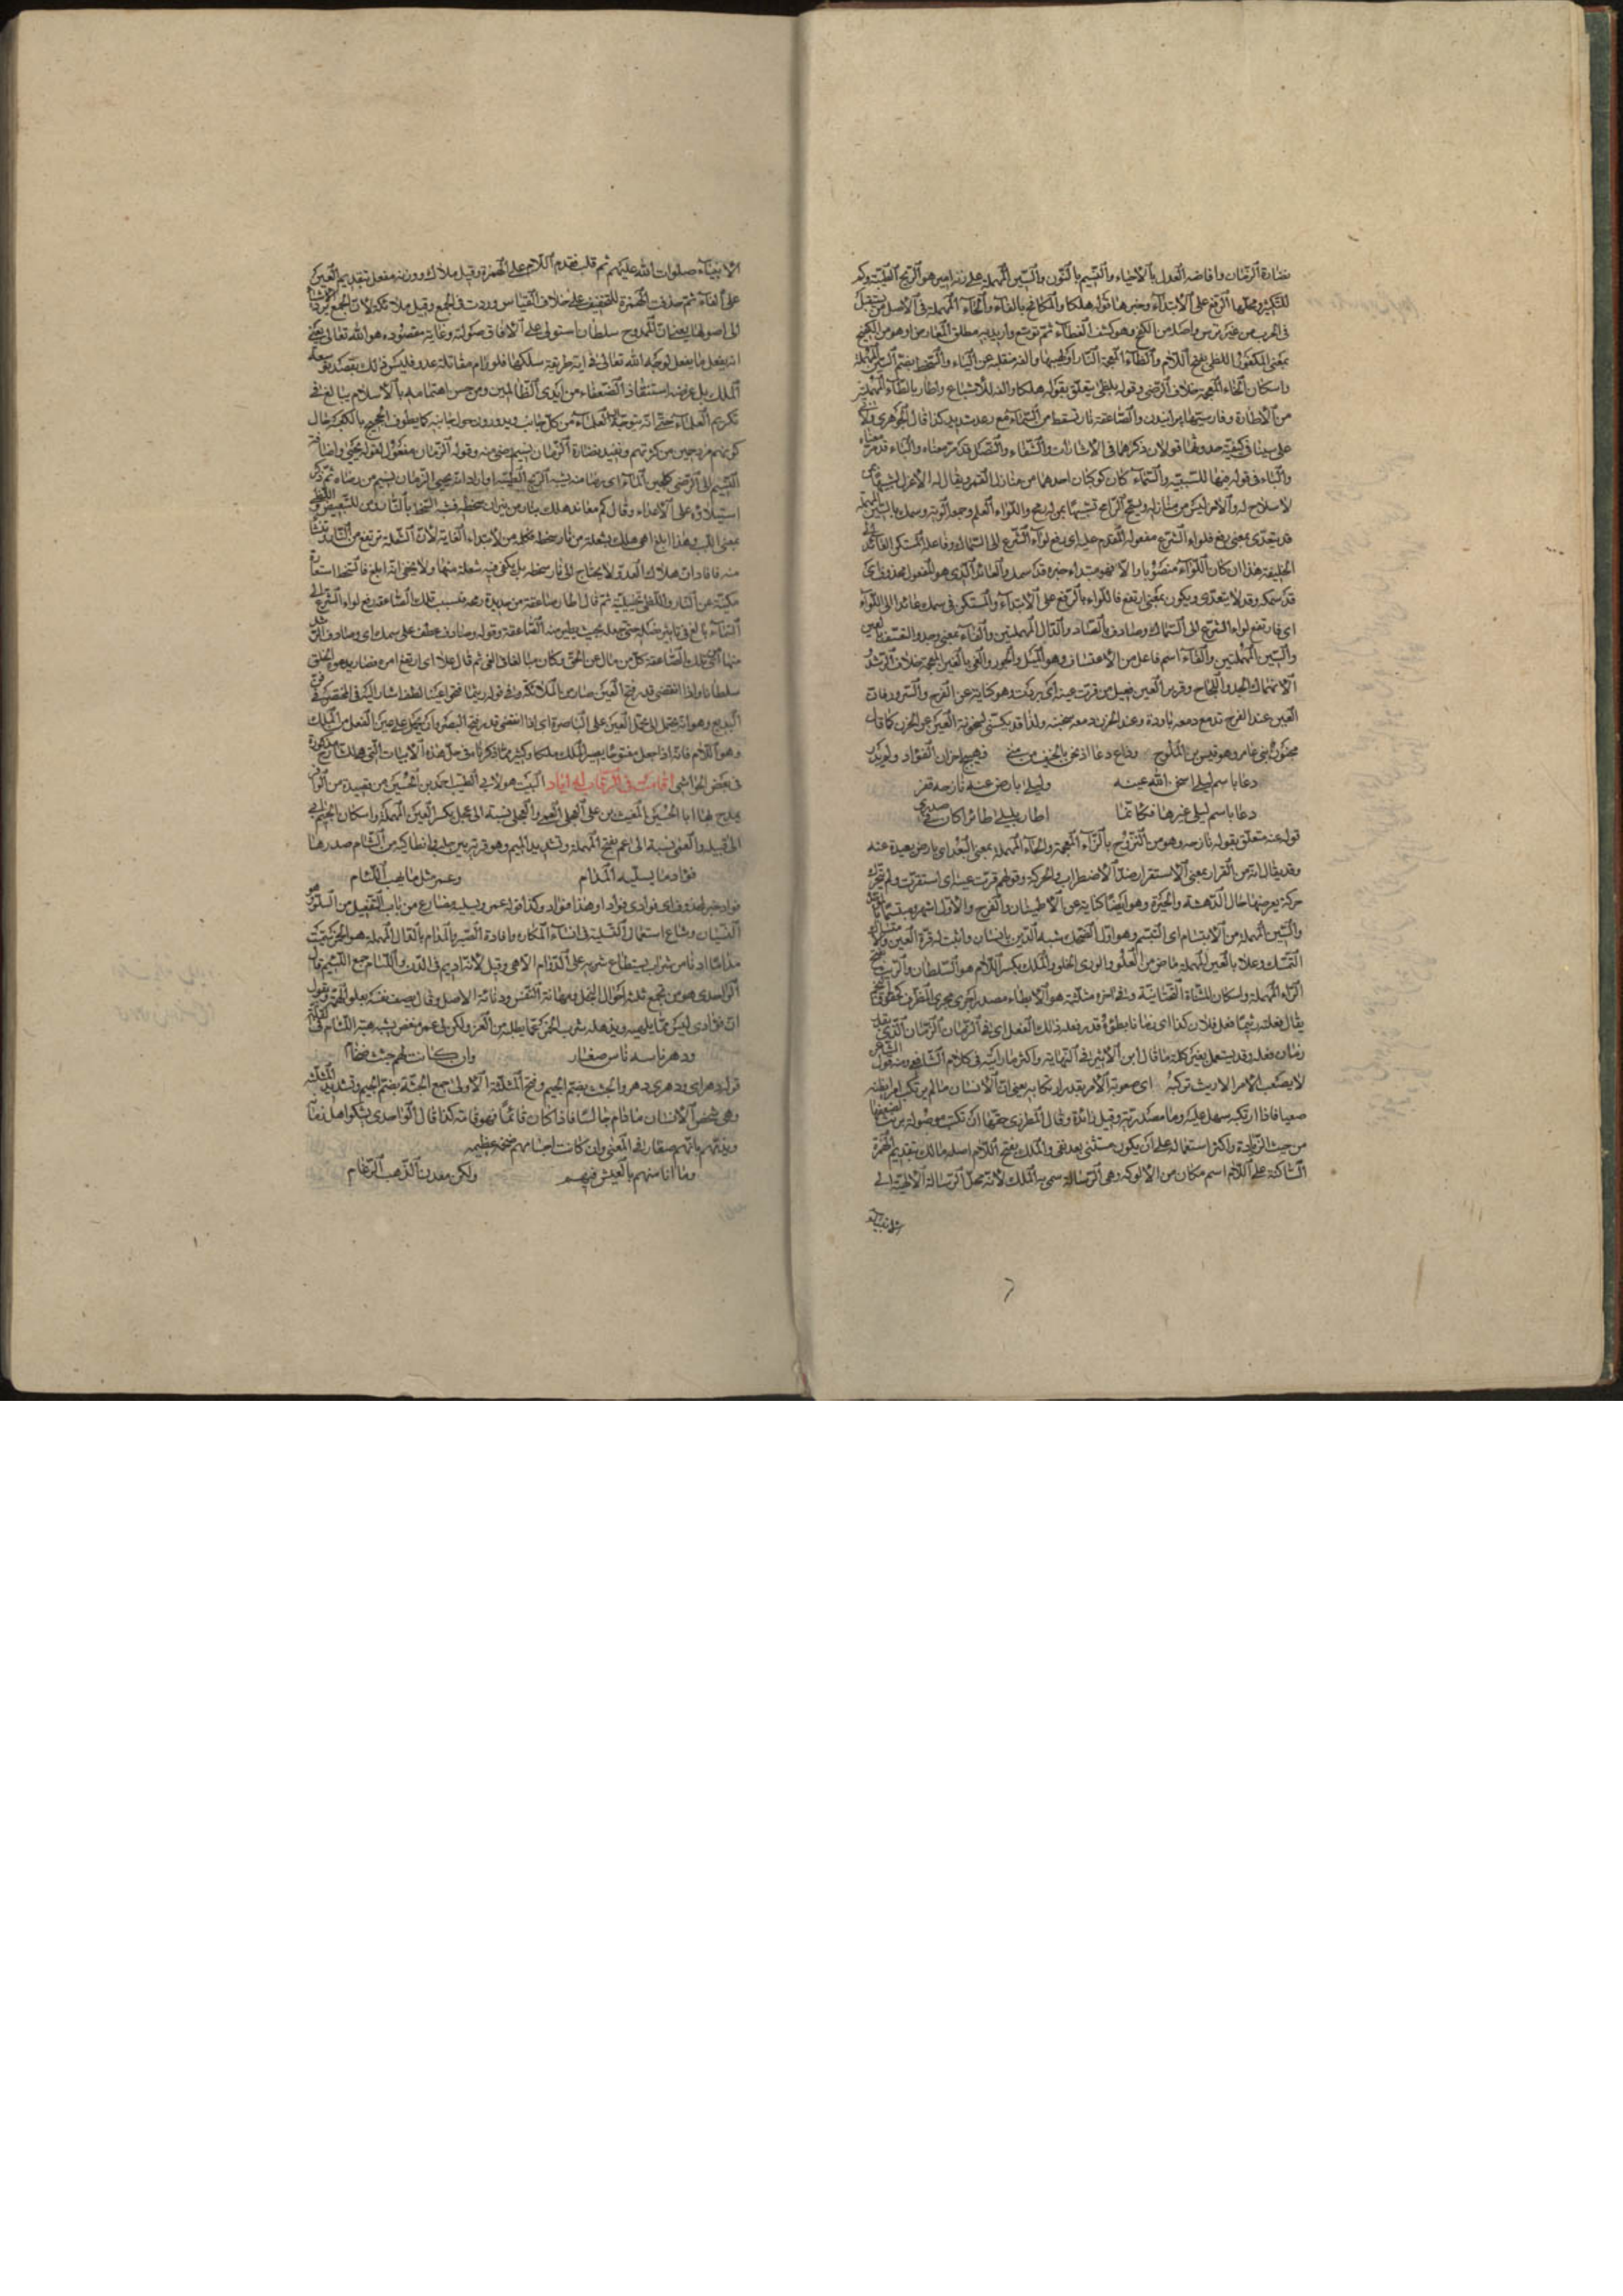 نضارة الزمان وافاضه العدل بالاحياء والنسيم بالنون والسين المهملة على زنة امير هو الريح الطيبة وكم
للتكثير ومحلها الرفع على الابتداء وخبرها قوله هلكا والمكافح بالفاء والحاء المهملة في الاصل من يستقبل
في الحرب من غير ترس واصله من الكفح وهو كشف الغطاء ثم توسع واريد به مطلق المعارض او هو من الكفيح
بمعنى الكفو اللظى بفتح اللام والظاء المعجمة النار او لهيبها والفه منقلبة عن الياء والسخط بضم السين المهملة
واسكان الخاء المعجمة خلاف الرضى وقوله بلظى يتعلق بقوله هلكا والفه للاشباع واطار بالطاء المهملة
من الاطارة وفارسيتها پرانيدن والصاعقة نار تسقط من السماء مع رعد شديد كذا قال الجوهري ولابي
على سينا في كيفية حدوثها قولان ذكرهما في الاشارات والشفاء والنصل قد مر معناه والباء قد مر معناه
والباء في قوله منها للسببية والسماء كان كوكبان احدهما من منازل القمر ويقال له الاعزل
لا سلاح له والآخر ليس من منازله ويسمى الرامح تشبيها بمن له رمح واللواء العلم وجمعه الوية وسمك بالسين المهملة
قد يتعدى بمعنى رفع فلواء الشرع مفعوله المقدم عليه اي رفع لواء الشرع الى السماك وفاعله المستكن العائد الى
الخليفة هذا ان كان اللواء منصوبا والا فهو مبتداء خبره قد سمك والعائد الذي هو المفعول محذوف اي
قد سمكه وقد لا يتعدى ويكون بمعنى ارتفع فاللواء بالرفع على الابتداء والمستكن في سمك عائد الى اللواء
اي فارتفع لواء الشرع الى السماك وصادف بالصاد والدال المهملتين والفاء بمعنى وجد والمعتسف بالعين
والسين المهملتين والفاء اسم فاعل من الاعتساف وهو الميل والجور والغى بالغين المعجمة خلاف الرشد
الانهماك الجد واللجاج وقرير العين فعيل من قرت عينه اي بردت وهو كناية عن الفرح والسرور فان
العين عند الفرح تدمع دمعة باردة وعند الحزن دمعة سخينة ولذا قد يكنى بسخونة العين عن الحزن كما قال
مجنون بني عامر وهو قيس بن الملوح وداع دعا اذ نحن بالخيف من منى فهيج احزان الفؤاد ولم يدر
دعا باسم ليلى اسخن الله عينه وليلى بارض عنه نازحة قفر
دعا باسم ليلى غيرها فكانما اطار بليلى طائرا كان في صدري
قوله عنه متعلق بقوله نازحه وهو من النزوح بالزاء المعجمة والحاء المهملة بمعنى البعد اي بارض بعيدة عنه
وقد يقال انه من القرار بمعنى الاستقرار ضد الاضطراب والحركة وقولهم قرت عينه اي استقرت ولم تتحرك
حركة يعرضها حال الدهشة والحيرة وهو ايضا كناية عن الاطمينان والفرح والاول اشهر
والسين المهملة من الابتسام اي التبسم وهو اول الضحك شبه الدين بانسان واثبت له قرة العين
التمسك وعلا بالعين المهملة ماض من العلو والورى الخلق والملك بكسر اللام هو السلطان والريث بفتح
الراء المهملة واسكان المثناة التحتانية وفي اخره مثلثة هو الابطاء مصدر اجرى مجرى الظرف
يقال فعلته ريثما فعل فلان كذا اي زمانا بطوءة قدر فعله ذلك الفعل اي في الزمان الذي
زمان فعله وقد يستعمل بغير كلمة ما قال ابن الاثير في النهاية واكثر ما رايته في كلام الشافعي ومنه قول الشاعر
لا يصعب الامر الا ريث تركبه اي صعوبة الامر بقدر ارتكابه يعني ان الانسان ما لم يرتكب امرا يظنه
صعبا فاذا ارتكبه سهل عليه وما مصدرية وقيل زائدة وقال المطرزي حقها ان تكتب موصولة بريث لضعفها
من حيث الزيادة واكثر استعماله على ان يكون مستثنى بعد نفي والملك بفتح اللام اصله مالك بتقديم الهمزة
الساكنة على اللام اسم مكان من الالوكة وهي الرسالة سمي به الملك لانه محل الرسالة الالهية الى
الانبياء
الانبياء صلوات الله عليهم ثم قلب فقدم اللام على الهمزة وقيل ملاك ووزنه مفعل بتقديم العين
على الفاء ثم حذفت الهمزة للتخفيف على خلاف القياس وردت في الجمع وقيل ملائكة لان الجمع يرد الاشياء
الى اصولها يعني ان الممدوح سلطان استولى على الآفاق صولته وغاية مقصوده هو الله تعالى يعني
انه يفعل ما يفعل لوجه الله تعالى في اية طريقة سلكها فلو رام مقاتلة عدو فليس ذلك بقصد توسعة
الملك بل غرضه استنقاذ الضعفاء من ايدي الظالمين ومن حسن اهتمامه بالاسلام يبالغ في
تكريم العلماء حتى انه يتوجه اليه العلماء من كل جانب ويدورون حول جنابه كما يطوف الحجيج بالكعبة حال
كونهم مزدحمين من كثرتهم وتفيد نضارة الزمان نسيم رضى منه وقوله الزمان مفعول لقوله يحيى واضافة
النسيم الى الرضى كلجين الماء اي رضا منه يشبه الريح الطيبة او اراد انه يحيى الزمان نسيم من رضاه ثم ذكر
استيلاءه على الاعداء وقال كم معاند هلك بنار من نيران سخطه فشبه السخط بالنار ومن للتبعيض واللظى
بمعنى اللهب وهذا ابلغ اي هلك بشعلة من نار سخطه فجعله من لابتداء الغاية لان الشعلة ترتفع من النار وتنشأ
منه فافاد ان هلاك العدو لا يحتاج الى نار سخطه بل يكفى فيه شعلة منها ولا يخفى انه ابلغ فالسخط استعارة
مكنية عن النار واللظى تخييلية ثم قال اطار صاعقة من حديدة رمحه فبسبب تلك الصاعقة رفع لواء الشرع الى
السماء بالغ في تاثير نصله حتى جعله بحيث يطير منه الصاعقة وقوله وصادف عطف على سمك اي وصادف الرشد
منها اي من تلك الصاعقة كل من مال عن الحق وكان مبالغا في الغى ثم قال علا اي ارتفع امره فصار يدعوه الخلق
سلطانا واذا انقضى قدر فتح العين صار من الملائكة وفي قوله ريثما فتحوا عينا لطف اشار اليه في المختصر في فن
البديع وهو انه يحتمل ان يحمل العين على الباصرة اي اذا انقضى قدر فتح البصر وان يحمل على عين الفعل من الملك
وهو اللام فانه اذا جعل مفتوحا يصير الملك ملكا وكثير مما ذكرنا في حل هذه الابيات التي هنالك مذكورة
في بعض الحواشي اقامت في الرقاب له اياد البيت هو لابي الطيب احمد بن الحسين من قصيدة من الوافر
يمدح بها ابا الحسين المغيث بن علي العجلي العمي والعجلي نسبة الى عجل بكسر العين المهملة واسكان الجيم ابي
القبيلة والعمي نسبة الى العم بفتح المهملة وتشديد الميم وهو قرية بين حلب وانطاكية من الشام صدرها
فؤاد ما يسليه المدام وعمر مثل ما يهب اللئام
فؤاد خبر لمحذوف اي فؤادي فؤاد او هذا فؤاد وكذا قوله عمر ويسليه مضارع من باب التفعيل من السلو وهو
النسيان وشاع استعمال التسلية في انساء المكاره وافادة الصبر والمدام بالدال المهملة هو الخمر سميت
مداما اذ ما من شراب يستطاع شربه على الدوام الا هي وقيل لانه اديم في الدن واللئام جمع اللئيم قال
الواحدي هو من تجمع ثلث احوال البخل ومهانة النفس ودنائة الاصل وقال يصف نفسه بعلو الهمة ويقول
ان فؤادي ليس مما يلهيه ويذهله شرب الخمر كما يطلبه من العز ولكن في عمر منغص يشبه هبة اللئام في القلة
ودهر ناسه ناس صغار وان كانت لهم جثث ضخام
قوله دهر اي ودهري دهر والجثث بضم الجيم وفتح المثلثة الاولى جمع الجثة بضم الجيم وتشديد المثلثة
وهي شخص الانسان ما دام جالسا فاذا كان قائما فهو قامة كذا قال الواحدي يشكو اهل زمانه
ويذمهم بانهم صغار في المعنى وان كانت اجسامهم ضخمة عظيمة
وما انا منهم بالعيش فيهم ولكن معدن الذهب الرغام